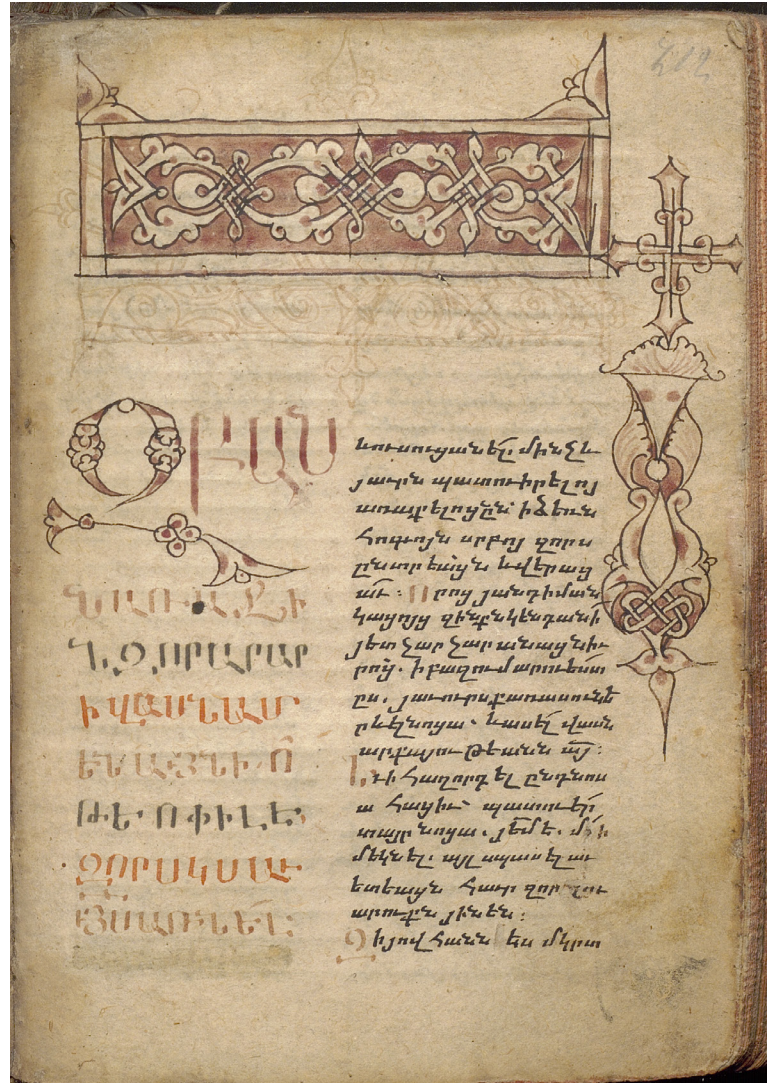 ԶԲԱՆ
Ն ԱՌԱՋԻ
Ն. ԶՈՐԱՐԱՐ
Ի ՎԱՍՆ ԱՄ
ԵՆԱՅՆԻ Ո՛Վ
ԹԷՈՓԻԼԷ
ԶՈՐ ՍԿՍԱՒ
ՅՍ ԱՌՆԵԼ։
եւ ուսուցանել. մինչև
յաւրն պատուիրելոյ
առաքելոցն՝ ի ձեռն
հոգւոյն սրբոյ զորս
ընտրեացն և վերաց
աւ։ Որոց յանդիման
կացոյց զինքն կենդանի
յետ չարչարանացն իւ
րոց. ի բազում արուեստ
ըս. յաւուրս քառասուն ե
րևել նոցա. և ասել վասն
արքայութեանն այ։
Եւ ի հաղորդել ընդ նոս
ա հացիւ պատուէր
տայր նոցա. յԵմէ. մի՛
մեկնել. այլ սպասել աւ
ետեացն հաւր զոր լու
արուքն յինէն։
Զի յովհանն ես մկրտ